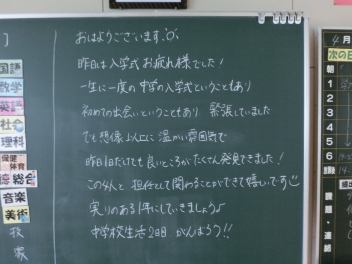 おはようございます。
昨日は入学式お疲れ様でした!
一生に一度の中学の入学式ということもあり
初めての出会いということもあり 緊張していました
でも想像以上に 温かい雰囲気で
昨日1日だけでも良いところがたくさん発見できました!
この4人と担任として関わることができて嬉しいです
実りのある1年にしていきましょう♪
中学校生活2日目 がんばろう!!
国語
数学
英語
社会
理科
保健
体育
総合
音楽
美術
4月
次の日
朝
1
2
3
4
5
6
課題・連絡